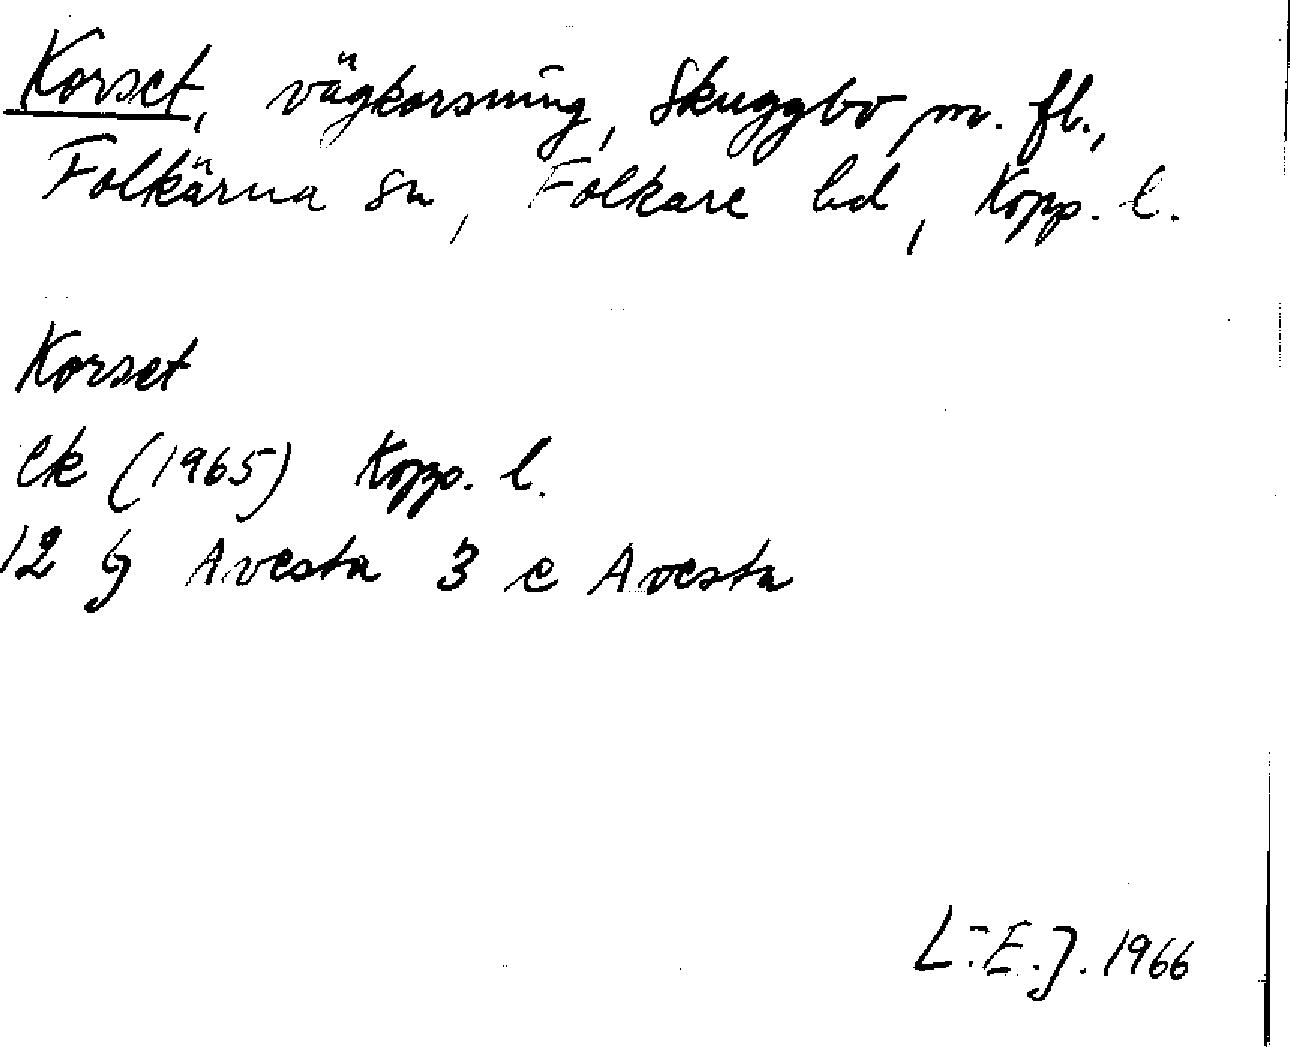 Korset, vägkorsning, Skuggbo m. fl.,
Folkärna sn, Folkare hd, Kopp. l.
Korset
Ek (1965) Kopp. l.
12 G Avesta 3 e Avesta
L.-E.J. 1966